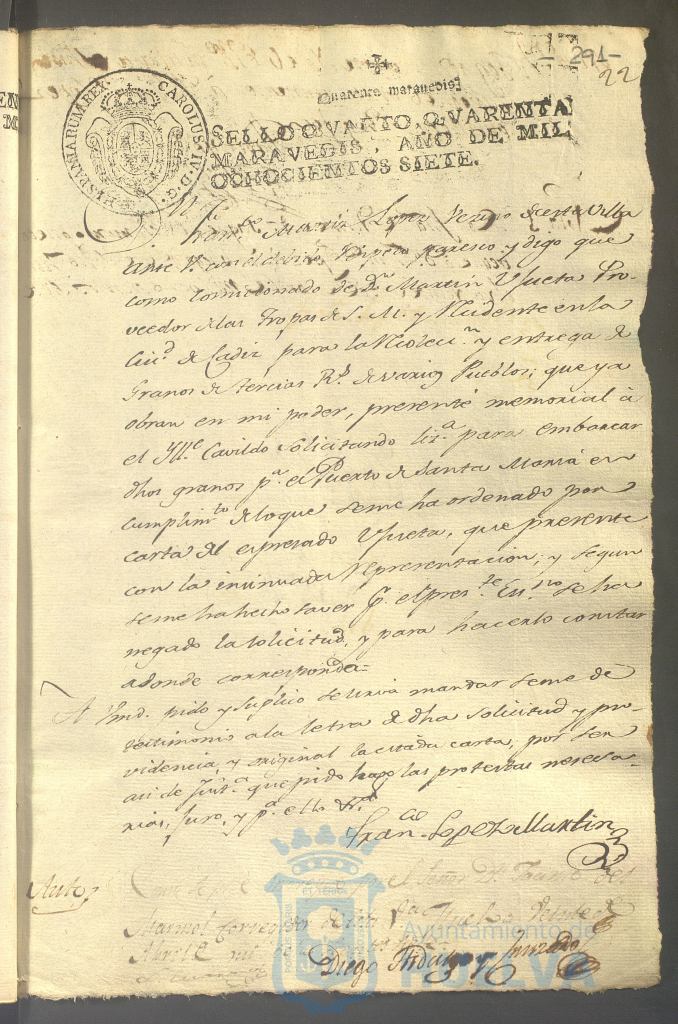 291-
22
Quarenta marauedis
SELLO QVARTO, QVARENTA
MARAVEDIS, AÑO DE MIL
OCHOCIENTOS SIETE.
HISPANIARUM REX CAROLUS IV D.G.
Fran.co Martin Lopez Vezino de esta Villa
ante V. con el debido respeto paresco y digo que
como Comicionado de Dn. Martin Usueta Pro-
veedor de las Tropas de S. M. y Recidente en la
Ciud. de Cadiz para la Recolecn. y entrega de
Granos de tercias Rs. de varios Pueblos; que ya
obran en mi poder, presenté memorial à
el Ylle Cavildo solicitando liza. para embarcar
dhos granos pa. el Puerto de Santa Maria en
cumplimto. de lo que se me ha ordenado por
carta del expresado Usueta, que presenté
con la incinuada representacion; y segun
se me ha hecho saver p. el preste. Essno. se ha
negado la solicitud, y para hacerlo constar
adonde corresponda=
A Vmd. pido y suplico se sirva mandar se me dé
testimonio a la letra de dha solicitud y pro-
videncia y original la citada carta, por ser
asi de justa. que pido hago las protestas nesesa-
rias, juro, y pa. ello &a
Franco. Lopez Martin
Auto
el Señor Dn.
Marmol Corregidor
Abril de mil
Diego Hidalgo y
Ayuntamiento de
HUELVA